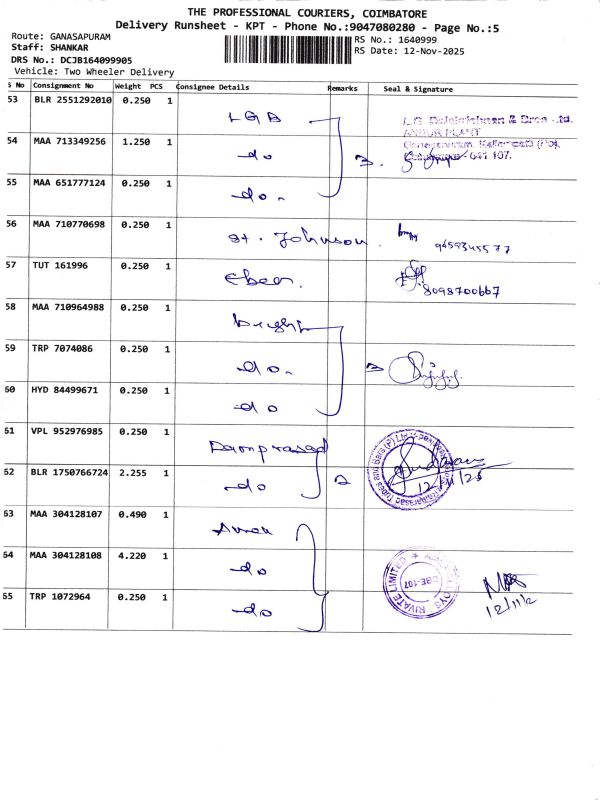 THE PROFESSIONAL COURIERS, COIMBATORE
Delivery Runsheet - KPT - Phone No.:9047080280 - Page No.:5
Route: GANASAPURAM
RS No.: 1640999
Staff: SHANKAR
RS Date: 12-Nov-2025
DRS No.: DCJB164099905
Vehicle: Two Wheeler Delivery
S No Consignment No Weight PCS Consignee Details Remarks Seal & Signature
53 BLR 2551292010 0.250 1 LGB
ANNUR PLANT
54 MAA 713349256 1.250 1 do 3.
641 107.
55 MAA 651777124 0.250 1 do
56 MAA 710770698 0.250 1 St. Johnson. 9659345577
57 TUT 161996 0.250 1 Eben. 8098700667
58 MAA 710964988 0.250 1 Bright
59 TRP 7074086 0.250 1 do. 3
60 HYD 84499671 0.250 1 do
61 VPL 952976985 0.250 1 Ramprasad
62 BLR 1750766724 2.255 1 do 2 12/11/25
63 MAA 304128107 0.490 1
64 MAA 304128108 4.220 1 do
65 TRP 1072964 0.250 1 do